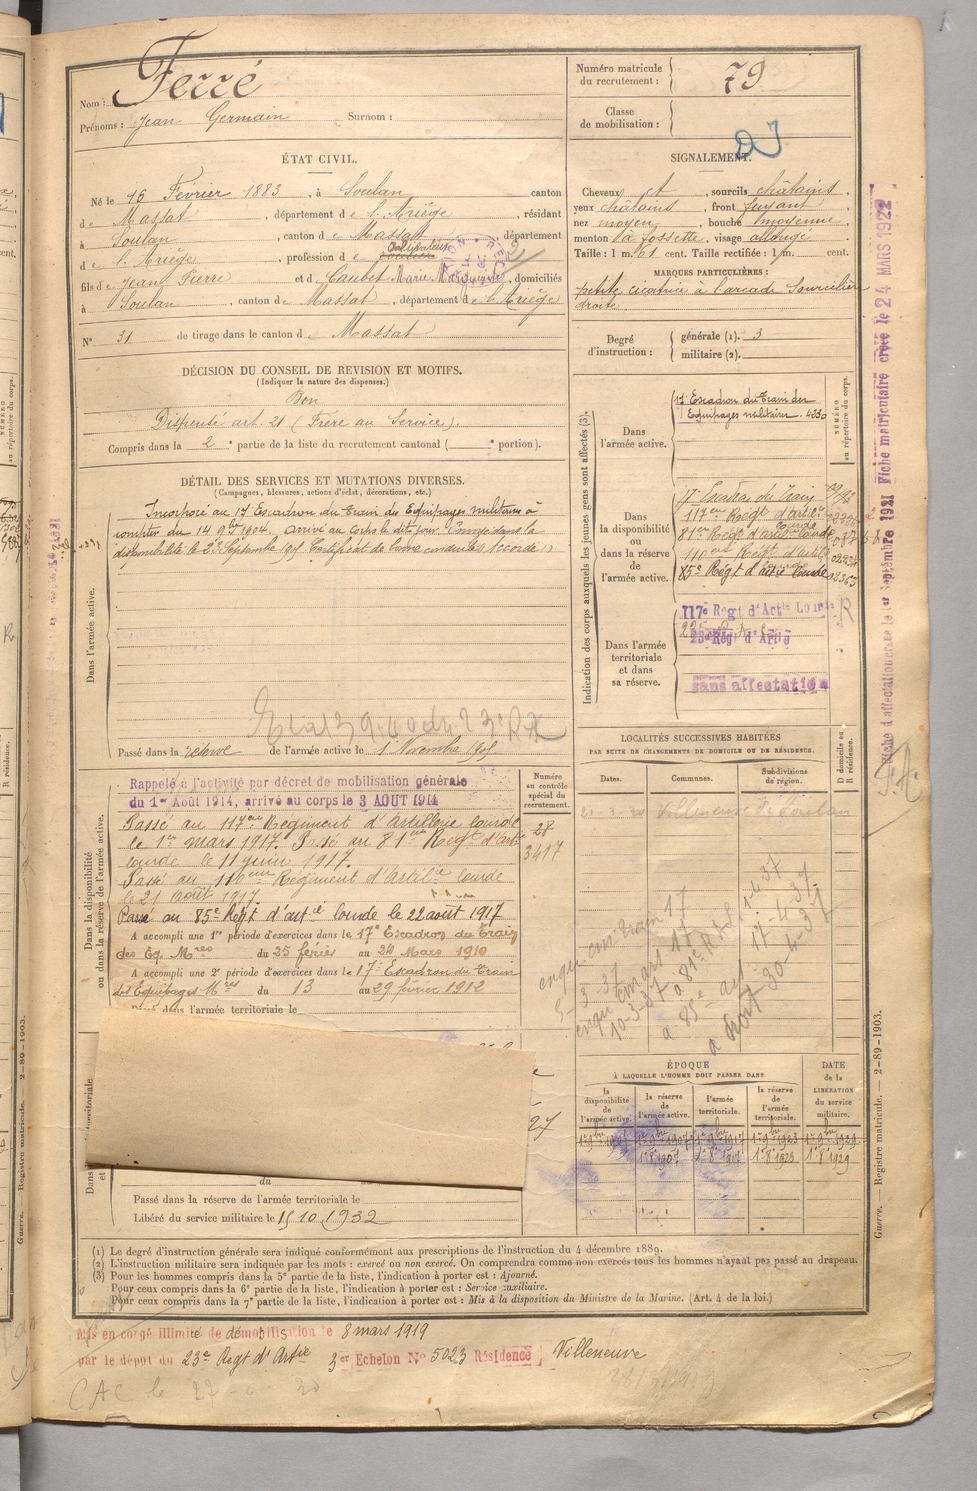 Nom : Ferré
Prénoms : Jean Germain Surnom :
Numéro matricule du recrutement : 79
Classe de mobilisation :
ÉTAT CIVIL.
Né le 16 Février 1883, à Soulan canton
de Massat, département de l'Ariège, résidant
à Soulan, canton de Massat, département
de l'Ariège, profession de cultivateur
fils de Jean Pierre et de Caubet Marie Marguerite, domiciliés
à Soulan, canton de Massat, département de l'Ariège
N° 31 de tirage dans le canton de Massat
SIGNALEMENT.
Cheveux ct, sourcils châtains,
yeux châtains, front fuyant,
nez moyen, bouche moyenne,
menton à fossette, visage allongé
Taille : 1 m. 61 cent. Taille rectifiée : 1 m. cent.
MARQUES PARTICULIÈRES :
petite cicatrice à l'arcade sourcilière
droite
Degré d'instruction : générale (1). 3
militaire (2).
DÉCISION DU CONSEIL DE REVISION ET MOTIFS.
(Indiquer la nature des dispenses.)
Bon
Dispensé art. 21 (Frère au Service).
Compris dans la 2e partie de la liste du recrutement cantonal ( e portion).
DÉTAIL DES SERVICES ET MUTATIONS DIVERSES.
(Campagnes, blessures, actions d'éclat, décorations, etc.)
Dans l'armée active.
Incorporé au 17e Escadron du Train des Equipages militaires à
compter du 14 9bre 1904. arrivé au Corps le dit jour. Envoyé dans la
disponibilité le 23 Septembre 1905 Certificat de bonne conduite Accordé
Passé dans la réserve de l'armée active le 1 Novembre 1907
Indication des corps auxquels les jeunes gens sont affectés (3).
NUMÉRO au répertoire du corps.
Dans l'armée active.
17e Escadron du Train des
Equipages militaires. 4330
Dans la disponibilité ou dans la réserve de l'armée active.
17e Escadron du Train
117eme Regt d'Artie
81eme Regt d'artie lourde
110eme Regt d'artie
85e Regt d'artie lourde
Dans l'armée territoriale et dans sa réserve.
117e Regt d'Artie Lourde
23e Regt d'Artie
sans affectation
Fiche d'affectation créée le 1er Septembre 1921 Fiche matriculaire créée le 24 MARS 1922
LOCALITÉS SUCCESSIVES HABITÉES
PAR SUITE DE CHANGEMENTS DE DOMICILE OU DE RÉSIDENCE.
Dates. Communes. Subdivisions de région. D domicile ou R résidence.
Dans la disponibilité ou dans la réserve de l'armée active.
Numéro au contrôle spécial du recrutement.
Rappelé à l'activité par décret de mobilisation générale
du 1er Août 1914, arrivé au corps le 3 AOUT 1914
Passé au 117eme Regiment d'Artillerie lourde
le 1er mars 1917. Passé au 81eme Regt d'Artie
lourde le 11 juin 1917.
Passé au 110eme Regiment d'Artillie lourde
le 21 août 1917.
Passé au 85e Regt d'artie lourde le 22 août 1917
28
3417
A accompli une 1re période d'exercices dans le 17e Escadron du Train
des Eq. Mres du 25 février au 24 Mars 1910
A accompli une 2e période d'exercices dans le 17e Escadron du Train
des Equipages Mres du 13 au 29 février 1912
dans l'armée territoriale le
ÉPOQUE
À LAQUELLE L'HOMME DOIT PASSER DANS
la disponibilité de l'armée active. la réserve de l'armée active. l'armée territoriale. la réserve de l'armée territoriale. DATE de la LIBÉRATION du service militaire.
1er 9bre 1907 1er 9bre 1917 1er 9bre 1923 1er 9bre 1929
1er 8bre 1907 1er 8bre 1917 1er 8bre 1923 1er 8bre 1929
du
Passé dans la réserve de l'armée territoriale le
Libéré du service militaire le 15 10 1932
(1) Le degré d'instruction générale sera indiqué conformément aux prescriptions de l'instruction du 4 décembre 1889.
(2) L'instruction militaire sera indiquée par les mots : exercé ou non exercé. On comprendra comme non exercés tous les hommes n'ayant pas passé au drapeau.
(3) Pour les hommes compris dans la 5e partie de la liste, l'indication à porter est : Ajourné.
Pour ceux compris dans la 6e partie de la liste, l'indication à porter est : Service auxiliaire.
Pour ceux compris dans la 7e partie de la liste, l'indication à porter est : Mis à la disposition du Ministre de la Marine. (Art. 4 de la loi.)
Guerre. — Registre matricule. — 2-89-1903.
Mis en congé illimité de démobilisation le 8 mars 1919
par le dépôt du 23e Regt d'Artie 3er Echelon N° 5023 Résidence Villeneuve
CAC le